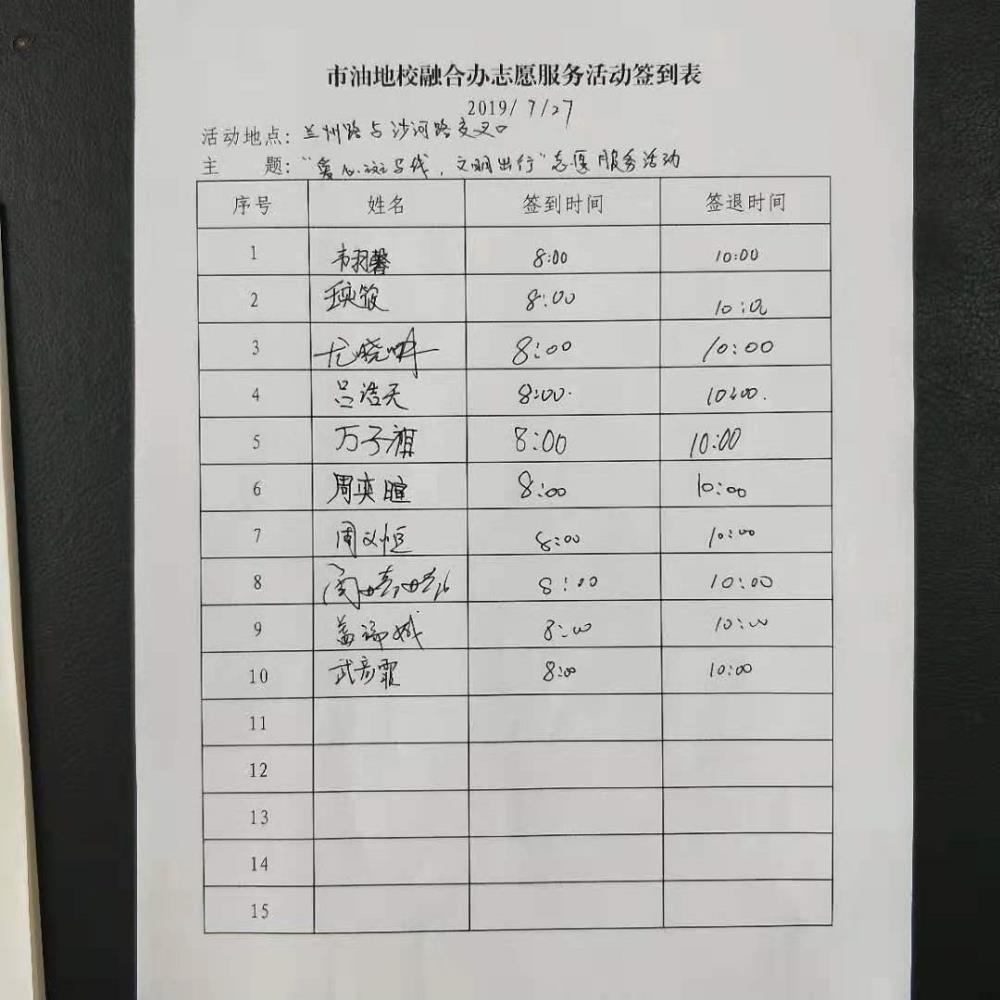 市油地校融合办志愿服务活动签到表
2019/7/27
活动地点：兰州路与沙河路交叉口
主 题：“爱心斑马线，文明出行”志愿服务活动
序号 姓名 签到时间 签退时间
1 韦羽馨 8:00 10:00
2 8:00 10:00
3 尤晓 8:00 10:00
4 吕浩天 8:00. 10:00.
5 万子祺 8:00 10:00
6 周奕暄 8:00 10:00
7 周义恒 8:00 10:00
8 8:00 10:00
9 8:00 10:00
10 武彦霏 8:00 10:00
11
12
13
14
15